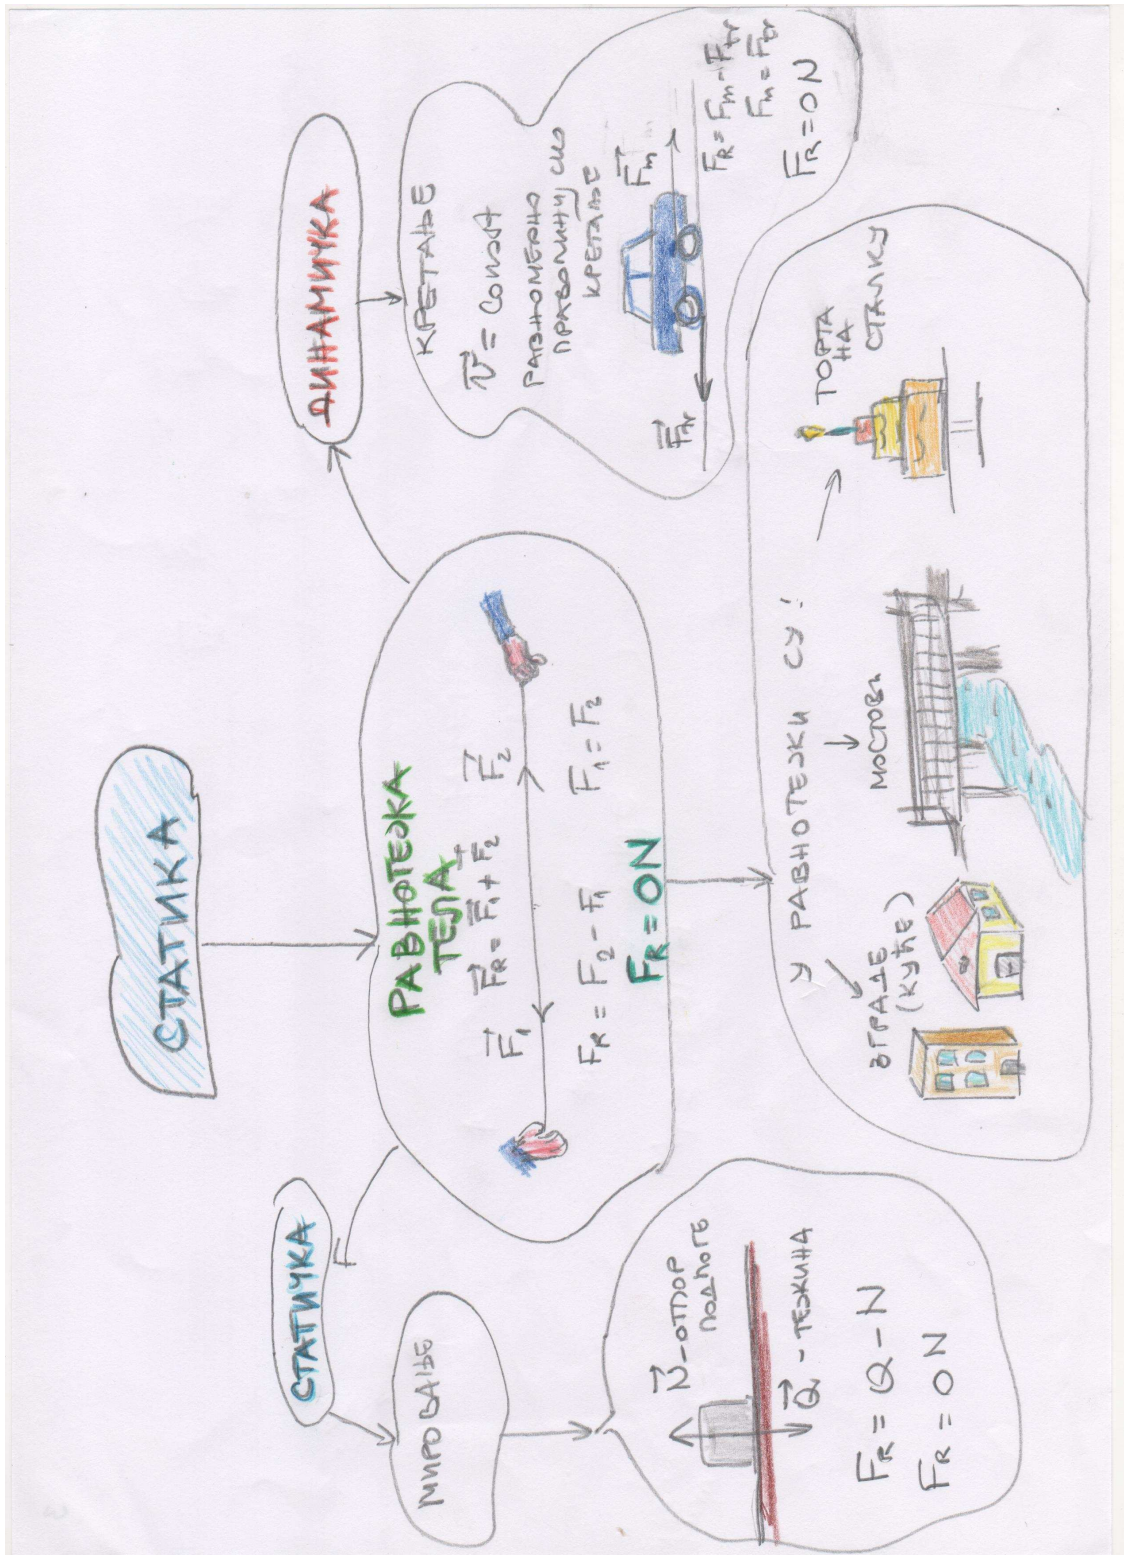 СТАТИКА
СТАТИЧКА
ДИНАМИЧКА
РАВНОТЕЖА
ТЕЛА
F⃗R = F⃗1 + F⃗2
F⃗1
F⃗2
FR = F2 - F1
F1 = F2
FR = 0N
МИРОВАЊЕ
N⃗ - ОТПОР
ПОДЛОГЕ
Q⃗ - ТЕЖИНА
FR = Q - N
FR = 0N
КРЕТАЊЕ
v⃗ = const
РАВНОМЕРНО
ПРАВОЛИНИЈСКО
КРЕТАЊЕ
F⃗m
F⃗tr
FR = Fm - Ftr
Fm = Ftr
FR = 0N
У РАВНОТЕЖИ СУ:
ЗГРАДЕ
(КУЋЕ)
МОСТОВИ
ТОРТА
НА
СТАЛКУ